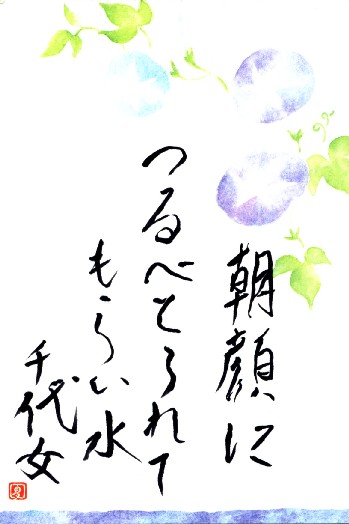 朝顔に
つるべとられて
もらい水
千代女